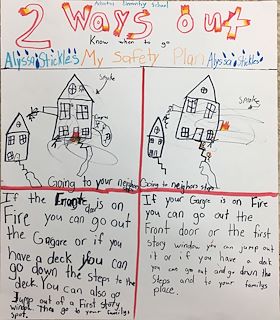 Elementary School
2 Ways out
Know when to go
Alyssa Stickles My Safety Plan Alyssa Stickles
Smoke
Smoke
Going to your neighbors
Going to neighbors
If the door is on
Fire you can go out
the Gagare or if you
have a deck you can
go down the steps to the
deck. You can also
Jump out of a First story
window. Then go to your familys
spot.
If your Gargie is on Fire
you can go out the
Front door or the first
story window you can jump out
it or if you have a deck
you can go out and go down the
steps and to your familys
place.